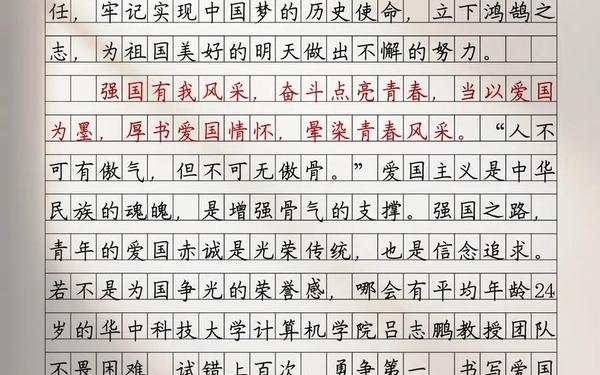 任，牢记实现中国梦的历史使命，立下鸿鹄之
志，为祖国美好的明天做出不懈的努力。
强国有我风采，奋斗点亮青春，当以爱国
为墨，厚书爱国情怀，晕染青春风采。“人不
可有傲气，但不可无傲骨。”爱国主义是中华
民族的魂魄，是增强骨气的支撑。强国之路，
青年的爱国赤诚是光荣传统，也是信念追求。
若不是为国争光的荣誉感，哪会有平均年龄24
岁的华中科技大学计算机学院吕志鹏教授团队
不畏困难，试错上百次，勇争第一，书写爱国